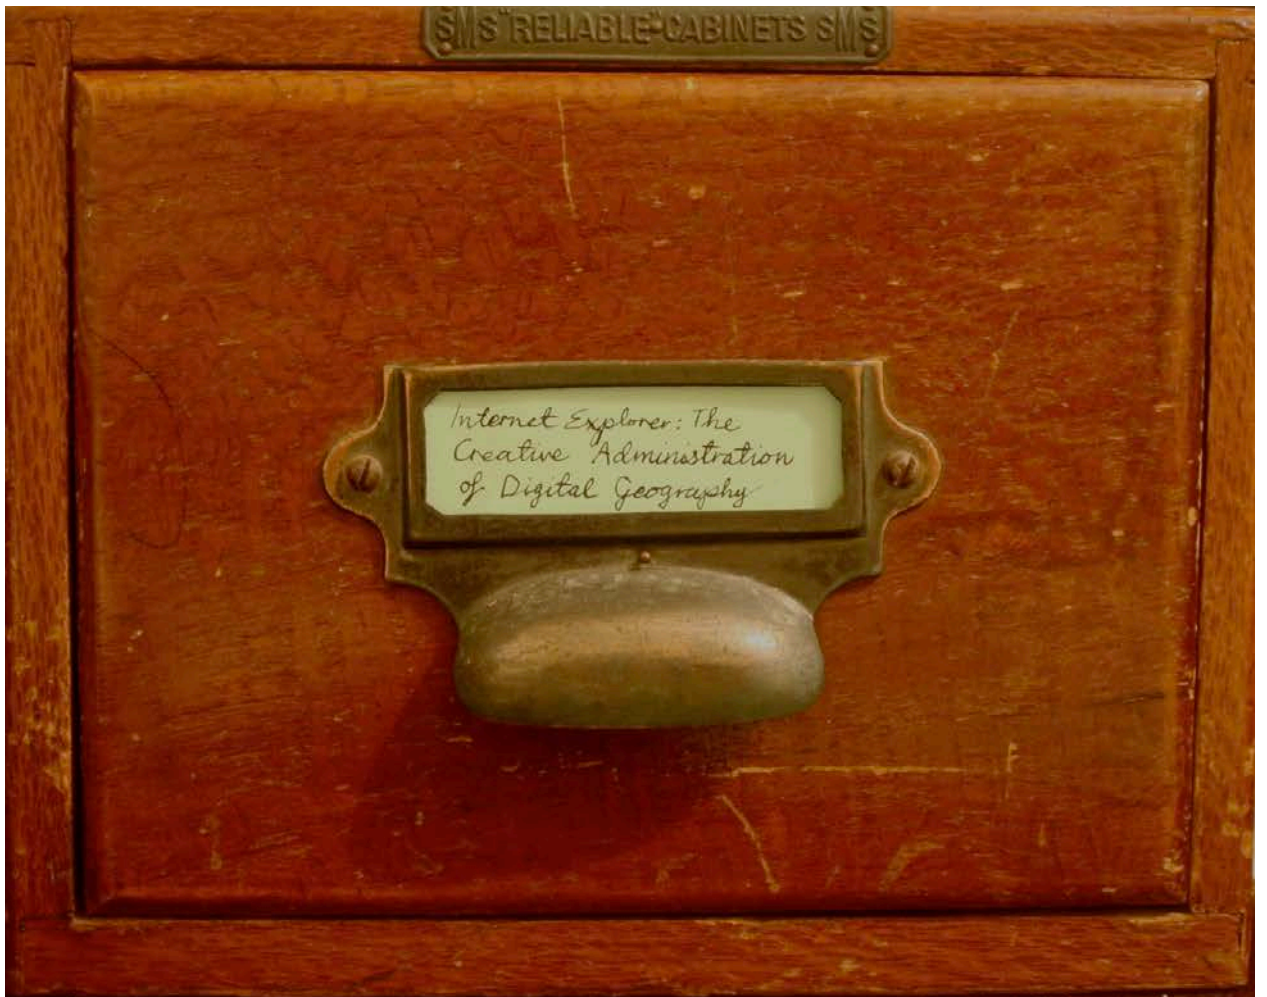 SMS "RELIABLE" CABINETS SMS
Internet Explorer: The
Creative Administration
of Digital Geography